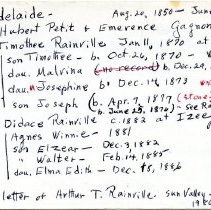 delaide - Aug. 20, 1850 - June
Hubert Petit & Emerence Gagnon
Timothee Rainville Jan 11, 1870 at
son Timothee - b. Oct 26, 1870
dau. Malvina (no record) b. Dec. 29,
dau. Josephine - b. Dec. 14, 1873
son Joseph (b. Apr. 7, 1877
(b. June 28, 1876) - See
Didace Rainville c. 1882 at Izee
Agnes Winnie - 1881
son Elzear - Dec. 9, 1882
" Walter - Feb. 14, 1885
dau. Elma Edith - Dec. 18, 1886
letter of Arthur T. Rainville Sun Valley -